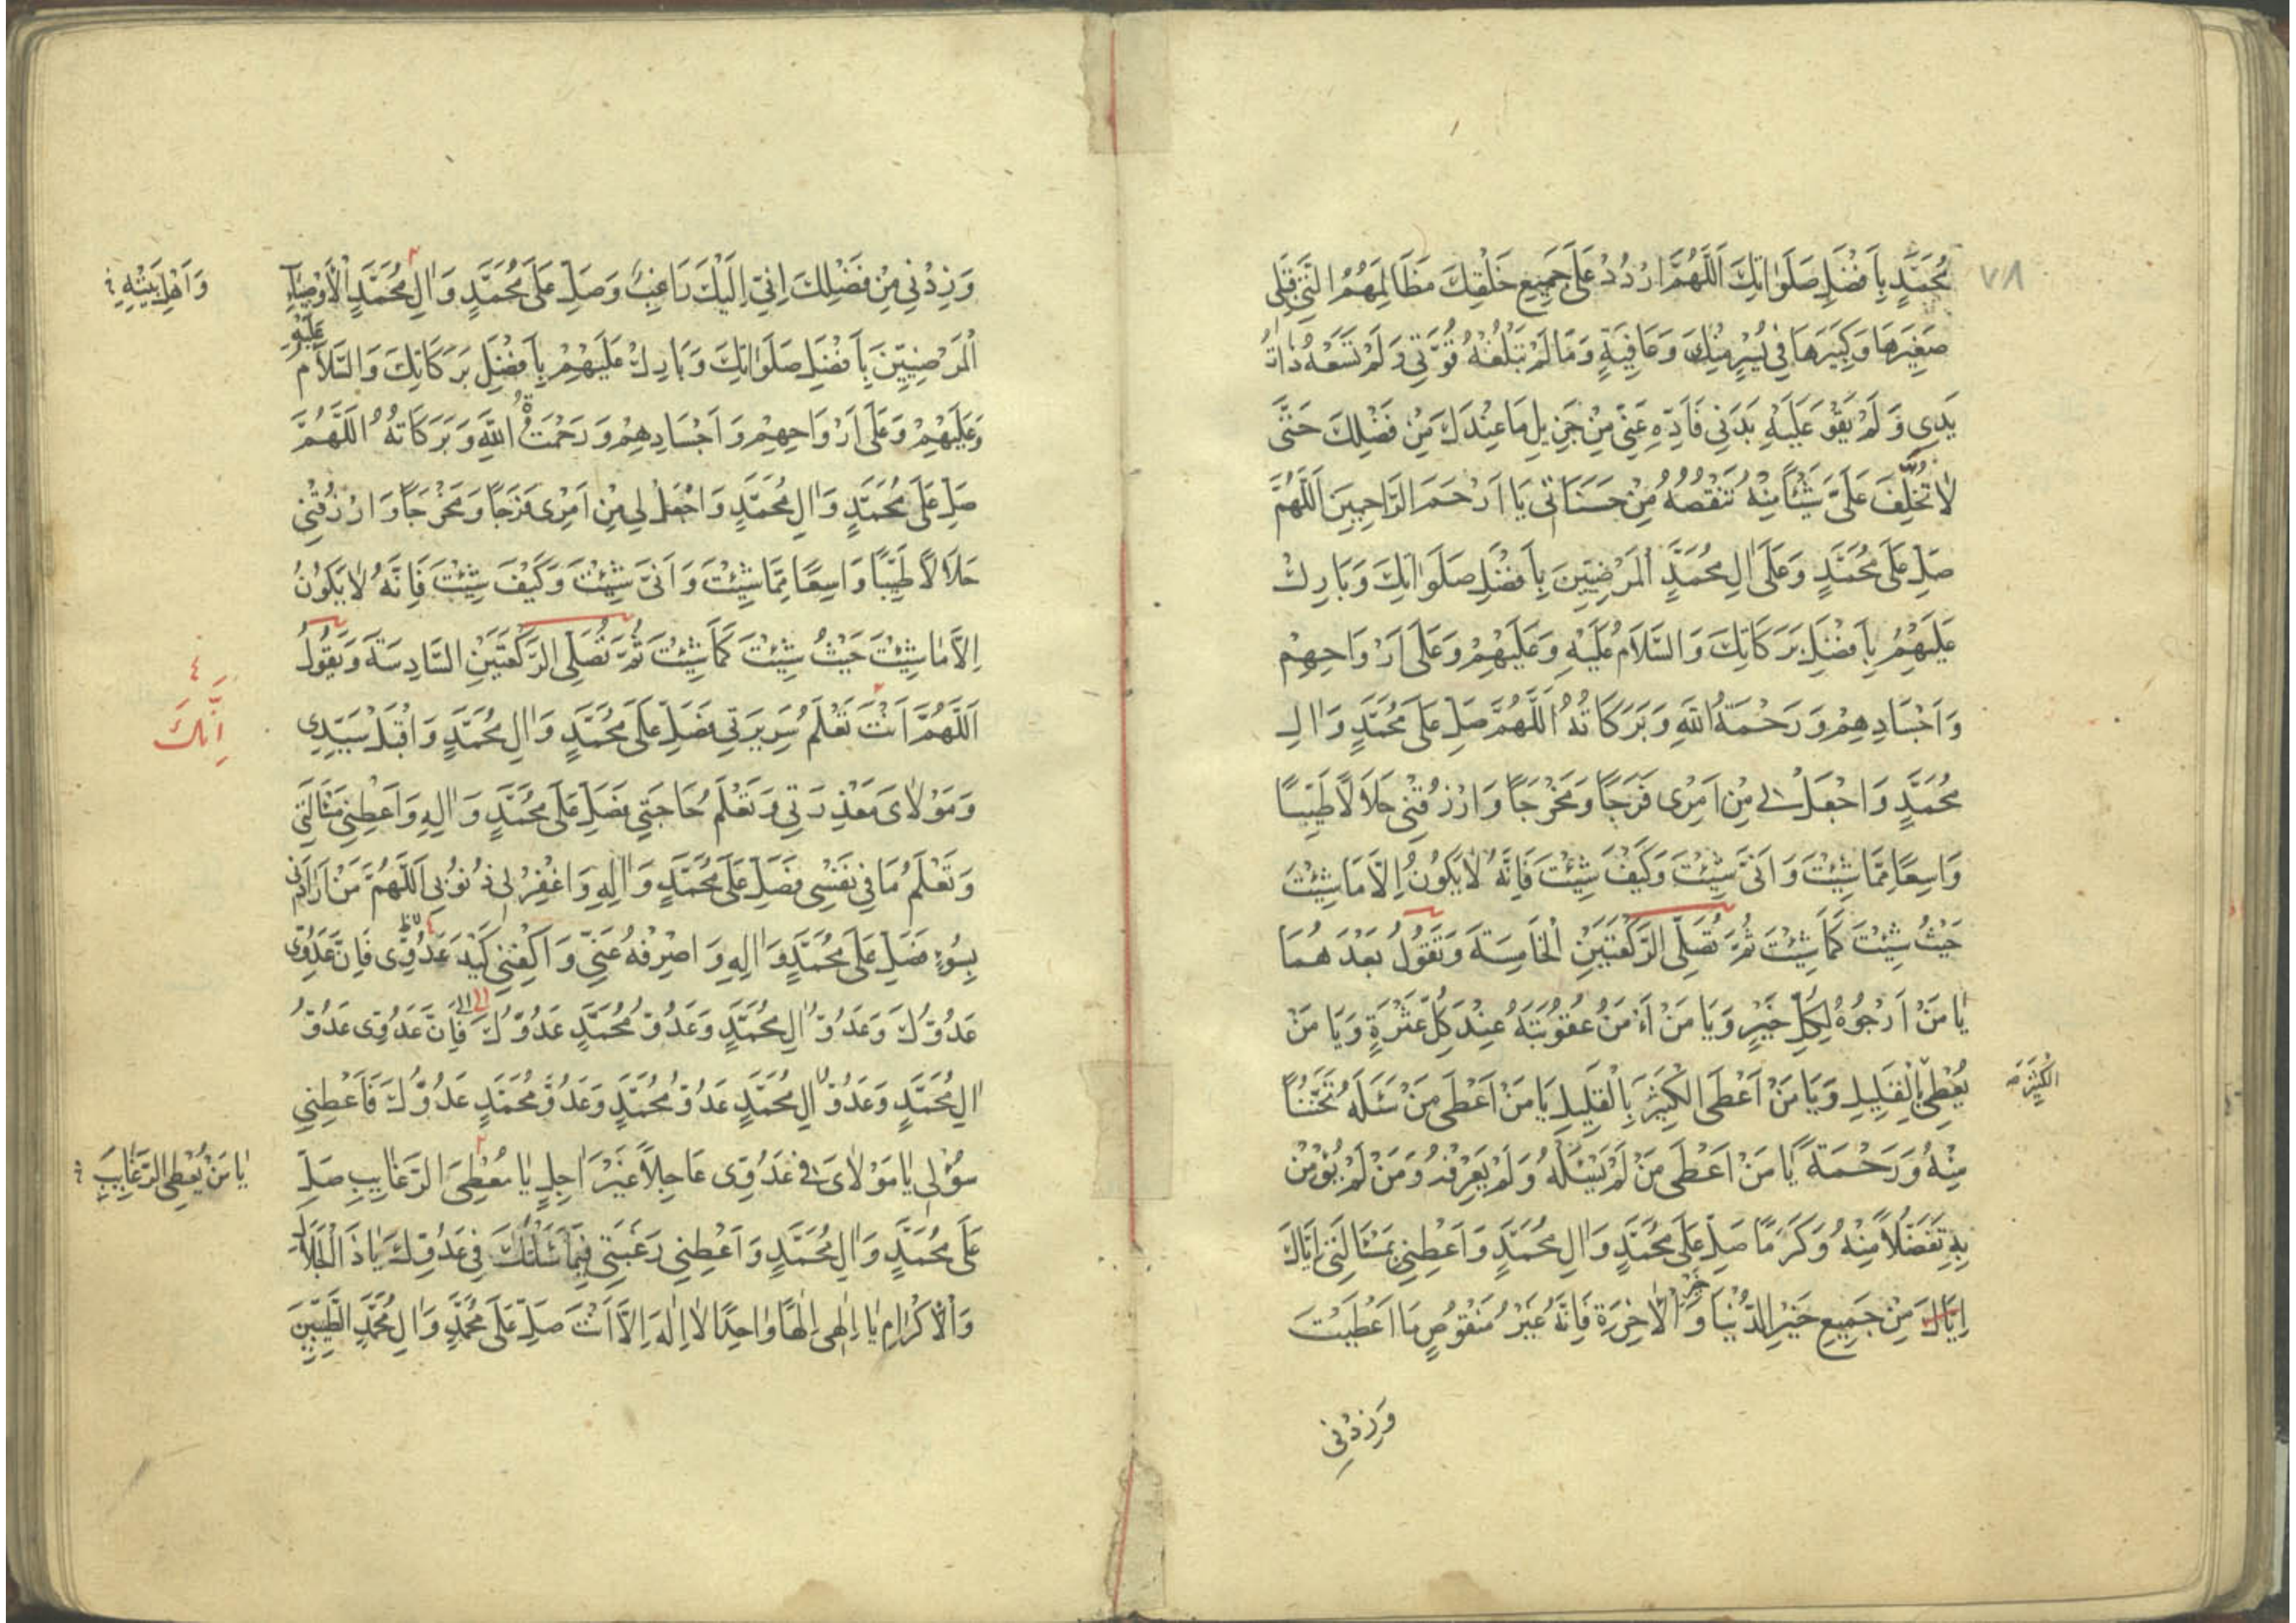 ٧٨
مُحَمَّدٍ بِاَفْضَلِ صَلَوٰاتِكَ اَللّٰهُمَّ ارْدُدْ عَلٰى جَمِيعِ خَلْقِكَ مَظَالِمَهُمُ الَّتِى قِبَلِى
صَغِيرَهَا وَكَبِيرَهَا فِى يُسْرٍ مِنْكَ وَعَافِيَةٍ وَمَا لَمْ تَبْلُغْهُ قُوَّتِى وَلَمْ تَسَعْهُ ذَاتُ
يَدِى وَلَمْ يَقْوَ عَلَيْهِ بَدَنِى فَاَدِّهِ عَنِّى مِنْ جَزِيلِ مَا عِنْدَكَ مِنْ فَضْلِكَ حَتّٰى
لَا تُخَلِّفَ عَلَىَّ شَيْئًا مِنْهُ تَنْقُصُهُ مِنْ حَسَنَاتِى يَا اَرْحَمَ الرَّاحِمِينَ اَللّٰهُمَّ
صَلِّ عَلٰى مُحَمَّدٍ وَعَلٰى اٰلِ مُحَمَّدٍ الْمَرْضِيِّينَ بِاَفْضَلِ صَلَوٰاتِكَ وَبَارِكْ
عَلَيْهِمْ بِاَفْضَلِ بَرَكَاتِكَ وَالسَّلَامُ عَلَيْهِ وَعَلَيْهِمْ وَعَلٰى اَرْوَاحِهِمْ
وَاَجْسَادِهِمْ وَرَحْمَةُ اللّٰهِ وَبَرَكَاتُهُ اَللّٰهُمَّ صَلِّ عَلٰى مُحَمَّدٍ وَاٰلِ
مُحَمَّدٍ وَاجْعَلْ لِى مِنْ اَمْرِى فَرَجًا وَمَخْرَجًا وَارْزُقْنِى حَلَالًا طَيِّبًا
وَاسِعًا مِمَّا شِئْتَ وَاَنّٰى شِئْتَ وَكَيْفَ شِئْتَ فَاِنَّهُ لَا يَكُونُ اِلَّا مَا شِئْتَ
حَيْثُ شِئْتَ كَمَا شِئْتَ ثُمَّ تُصَلِّى الرَّكْعَتَيْنِ الْخَامِسَةَ وَتَقُولُ بَعْدَهُمَا
يَا مَنْ اَرْجُوهُ لِكُلِّ خَيْرٍ وَيَا مَنْ اٰمَنُ عُقُوبَتَهُ عِنْدَ كُلِّ عَثْرَةٍ وَيَا مَنْ
يُعْطِى بِالْقَلِيلِ وَيَا مَنْ اَعْطَى الْكَثِيرَ بِالْقَلِيلِ يَا مَنْ اَعْطٰى مَنْ سَئَلَهُ تَحَنُّنًا
الْكَثِيرَ
مِنْهُ وَرَحْمَةً يَا مَنْ اَعْطٰى مَنْ لَمْ يَسْئَلْهُ وَلَمْ يَعْرِفْهُ وَمَنْ لَمْ يُؤْمِنْ
بِهِ تَفَضُّلًا مِنْهُ وَكَرَمًا صَلِّ عَلٰى مُحَمَّدٍ وَاٰلِ مُحَمَّدٍ وَاَعْطِنِى بِمَسْئَلَتِى اِيَّاكَ
اِيَّاكَ مِنْ جَمِيعِ خَيْرِ الدُّنْيَا وَخَيْرِ الْاٰخِرَةِ فَاِنَّهُ غَيْرُ مَنْقُوصٍ مَا اَعْطَيْتَ
وَزِدْنِى
وَزِدْنِى مِنْ فَضْلِكَ اِنِّى اِلَيْكَ رَاغِبٌ وَصَلِّ عَلٰى مُحَمَّدٍ وَاٰلِ مُحَمَّدٍ الْاَوْصِيَاءِ
وَاَهْلِ بَيْتِهِ
الْمَرْضِيِّينَ بِاَفْضَلِ صَلَوٰاتِكَ وَبَارِكْ عَلَيْهِمْ بِاَفْضَلِ بَرَكَاتِكَ وَالسَّلَامُ عَلَيْهِ
وَعَلَيْهِمْ وَعَلٰى اَرْوَاحِهِمْ وَاَجْسَادِهِمْ وَرَحْمَتُ اللّٰهِ وَبَرَكَاتُهُ اَللّٰهُمَّ
صَلِّ عَلٰى مُحَمَّدٍ وَاٰلِ مُحَمَّدٍ وَاجْعَلْ لِى مِنْ اَمْرِى فَرَجًا وَمَخْرَجًا وَارْزُقْنِى
حَلَالًا طَيِّبًا وَاسِعًا مِمَّا شِئْتَ وَاَنّٰى شِئْتَ وَكَيْفَ شِئْتَ فَاِنَّهُ لَا يَكُونُ
اِلَّا مَا شِئْتَ حَيْثُ شِئْتَ كَمَا شِئْتَ ثُمَّ تُصَلِّى الرَّكْعَتَيْنِ السَّادِسَةَ وَتَقُولُ
اَللّٰهُمَّ اَنْتَ تَعْلَمُ سَرِيرَتِى فَصَلِّ عَلٰى مُحَمَّدٍ وَاٰلِ مُحَمَّدٍ وَاقْبَلْ سَيِّدِى
اِنَّكَ
وَمَوْلَاىَ مَعْذِرَتِى وَتَعْلَمُ حَاجَتِى فَصَلِّ عَلٰى مُحَمَّدٍ وَاٰلِهِ وَاَعْطِنِى مَسْئَلَتِى
وَتَعْلَمُ مَا فِى نَفْسِى فَصَلِّ عَلٰى مُحَمَّدٍ وَاٰلِهِ وَاغْفِرْ لِى ذُنُوبِى اَللّٰهُمَّ مَنْ اَرَادَنِى
بِسُوءٍ فَصَلِّ عَلٰى مُحَمَّدٍ وَاٰلِهِ وَاصْرِفْهُ عَنِّى وَاكْفِنِى كَيْدَ عَدُوِّى فَاِنَّ عَدُوِّى
عَدُوُّكَ وَعَدُوُّ اٰلِ مُحَمَّدٍ وَعَدُوُّ مُحَمَّدٍ عَدُوُّكَ فَاِنَّ عَدُوِّى عَدُوُّ
اٰلِ مُحَمَّدٍ وَعَدُوُّ اٰلِ مُحَمَّدٍ عَدُوُّ مُحَمَّدٍ وَعَدُوُّ مُحَمَّدٍ عَدُوُّكَ فَاَعْطِنِى
سُؤْلِى يَا مَوْلَاىَ فِى عَدُوِّى عَاجِلًا غَيْرَ اٰجِلٍ يَا مُعْطِىَ الرَّغَايِبِ صَلِّ
يَا مَنْ يُعْطِى الرَّغَايِبَ
عَلٰى مُحَمَّدٍ وَاٰلِ مُحَمَّدٍ وَاَعْطِنِى رَغْبَتِى فِيمَا سَئَلْتُكَ فِى عَدُوِّكَ يَا ذَا الْجَلَالِ
وَالْاِكْرَامِ يَا اِلٰهِى اِلٰهًا وَاحِدًا لَا اِلٰهَ اِلَّا اَنْتَ صَلِّ عَلٰى مُحَمَّدٍ وَاٰلِ مُحَمَّدٍ الطَّيِّبِينَ